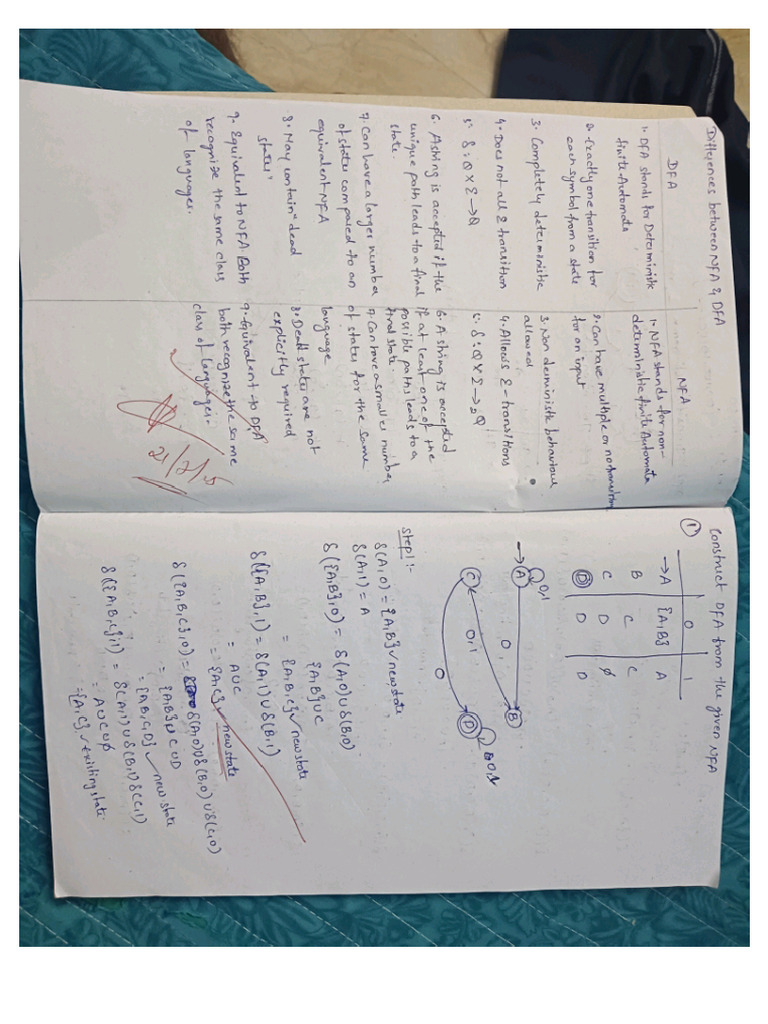 Differences between NFA & DFA
DFA
1. DFA stands for Deterministic
finite Automata
2. Exactly one transition for
each symbol from a state
3. Completely deterministic
4. Does not all ε transition
5. δ : Q × Σ → Q
6. A string is accepted if the
unique path leads to a final
state.
7. Can have a larger number
of states compared to an
equivalent NFA
8. May contain "dead
states"
9. Equivalent to NFA. Both
recognize the same class
of languages.
NFA
1. NFA stands for non-
deterministic finite Automata
2. Can have multiple or no transition
for an input
3. Non deministic behaviour
allowed
4. Allows ε-transitions
5. δ : Q × Σ → 2^Q
6. A string is accepted
if at least one of the
possible paths leads to a
final state.
7. Can have a smaller number
of states for the same
language
8. Dead states are not
explicitly required
9. Equivalent to DFA
both recognize the same
class of languages.
Construct DFA from the given NFA
①
0 1
→A {A,B} A
B C C
C D φ
D D D
A 0,1
0
B
0,1
C
0
D 0,1
Step1:-
δ(A,0) = {A,B} ✓ new state,
δ(A,1) = A
δ({A,B},0) = δ(A,0) ∪ δ(B,0)
{A,B} ∪ C
= {A,B,C} ✓ new state
δ({A,B},1) = δ(A,1) ∪ δ(B,1)
= A ∪ C
= {A,C} ✓ new state
δ({A,B,C},0) = δ(A,0) ∪ δ(B,0) ∪ δ(C,0)
= {A,B} ∪ C ∪ D
= {A,B,C,D} ✓ new state
δ({A,B,C},1) = δ(A,1) ∪ δ(B,1) δ(C,1)
= A ∪ C ∪ φ
= {A,C} ✓ existing state.